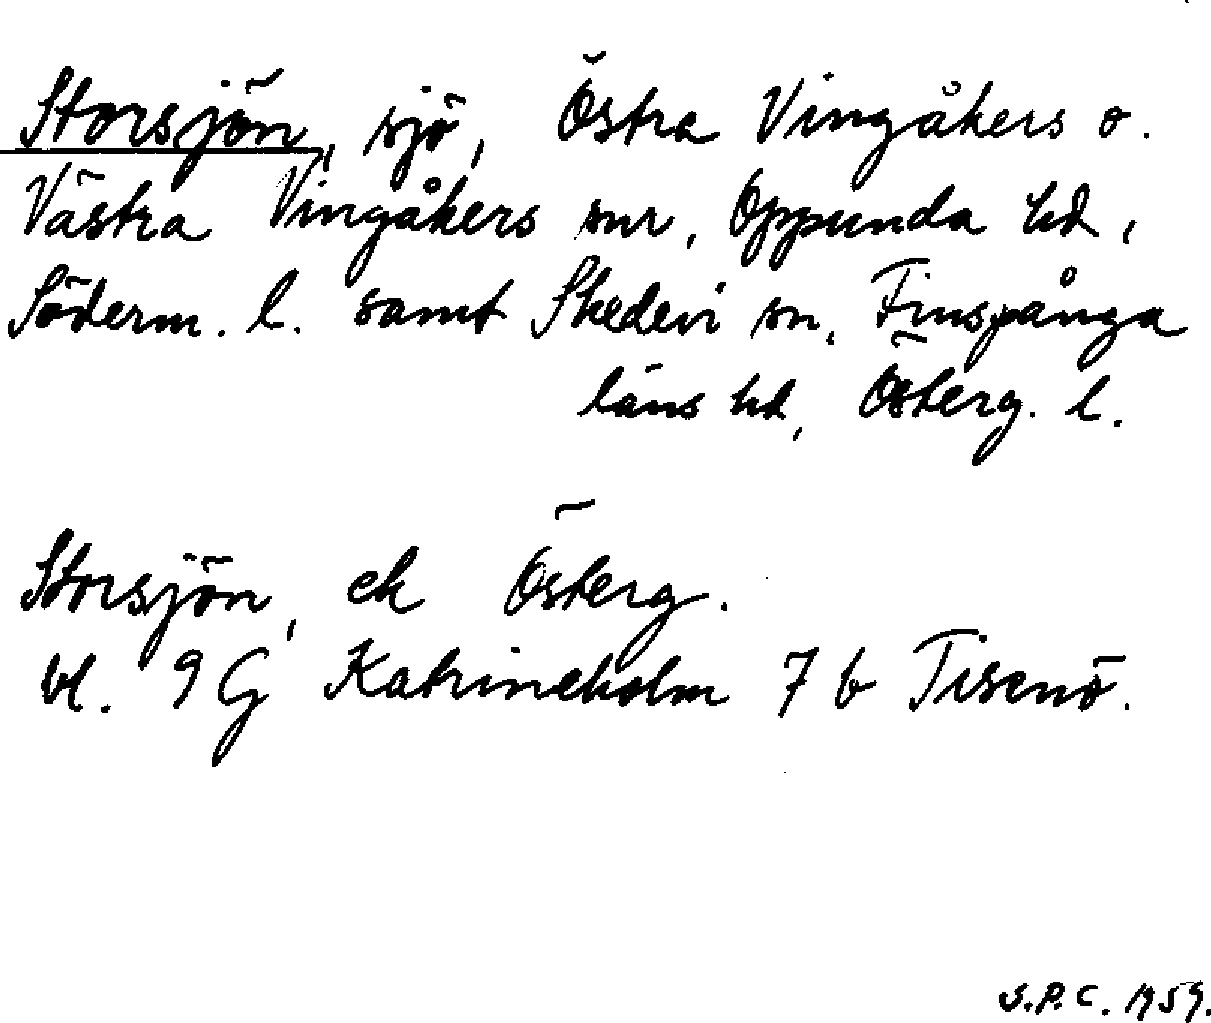 Storsjön, sjö, Östra Vingåkers o.
Västra Vingåkers snr, Oppunda hd,
Söderm. l. samt Skedevi sn, Finspånga
läns hd, Österg. l.
Storsjön, ek Österg.
bl. 9 G Katrineholm 7 b Tisenö.
S.P.C. 1959.